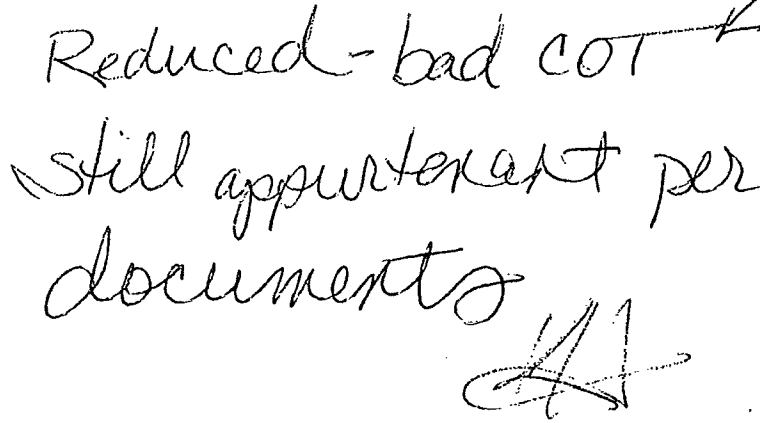 Reduced - bad COT
still appurtenant per
documents